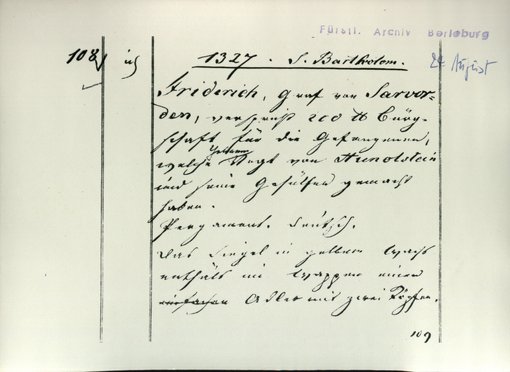 Fürstl. Archiv Berleburg
108) 1327. S. Bartholom. 24 August
Friderich, Graf von Sarwor-
den, verspricht 200 ℔ Bürg-
schaft für die Gefangenen,
welche Johann Vogt von Hunolstein
und seine Gehülfen gemacht
haben.
Pergament. Deutsch.
Das Siegel in gelbem Wachs
enthält im Wappen einen
einfachen Adler mit zwei Köpfen.
109